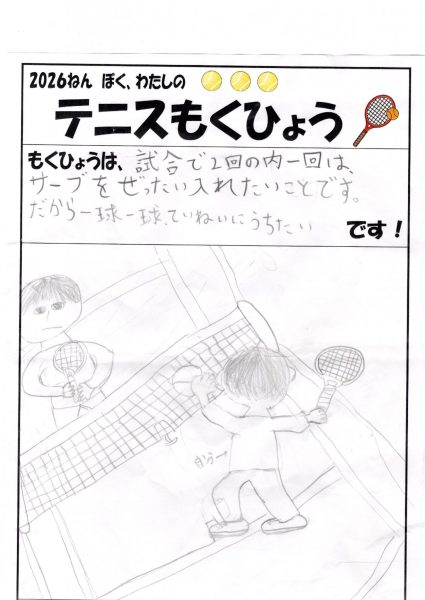 2026ねん ぼく、わたしの
テニスもくひょう
もくひょうは、試合で2回の内一回は、
サーブをぜったい入れたいことです。
だから一球一球、ていねいにうちたい
です！
自分→